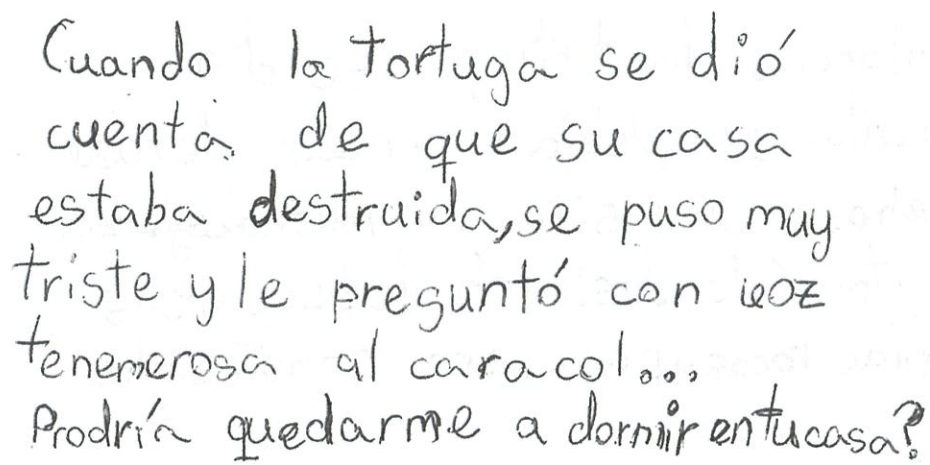 Cuando la tortuga se dió
cuenta de que su casa
estaba destruida, se puso muy
triste y le preguntó con voz
tenemerosa al caracol...
Prodría quedarme a dormir en tu casa?